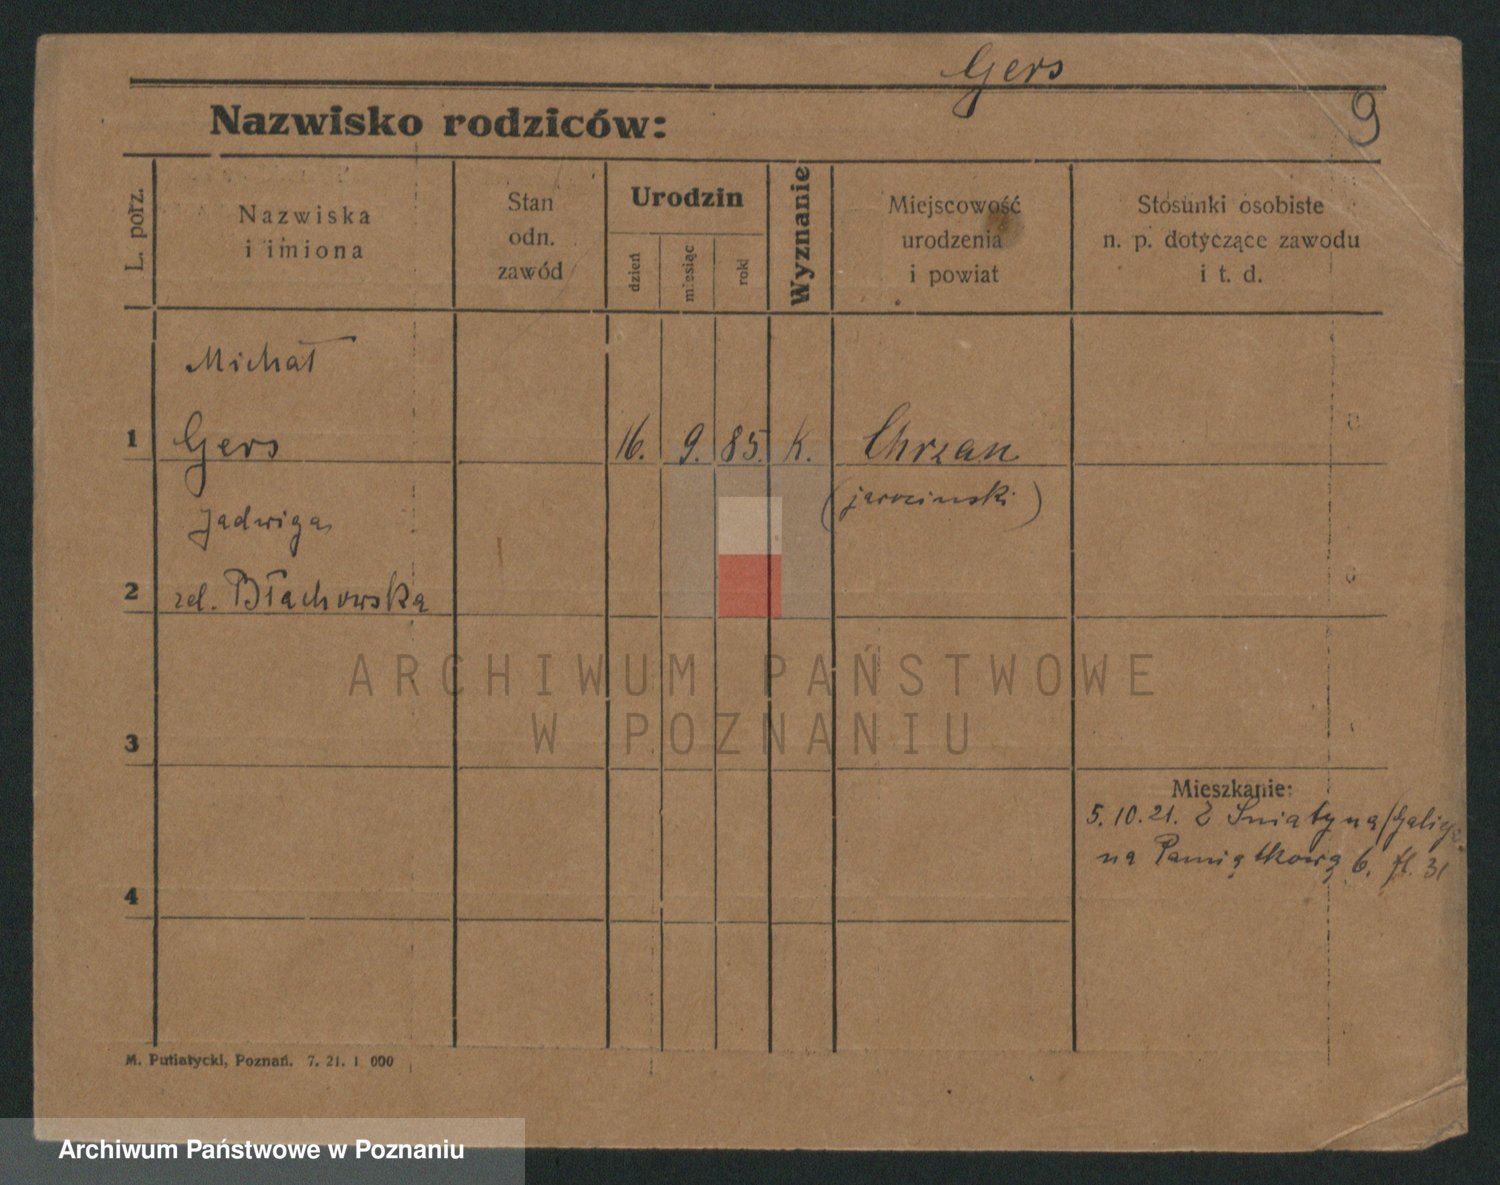 Gers
9
Nazwisko rodziców:
L. porz.
Nazwiska
i imiona
Stan
odn.
zawód
Urodzin
dzień
miesiąc
rok
Wyznanie
Miejscowość
urodzenia
i powiat
Stosunki osobiste
n. p. dotyczące zawodu
i t. d.
Michał
1 Gers 16. 9. 85. K. Chrzan
(jarocinski)
Jadwiga
2 zd. Błachowska
ARCHIWUM PAŃSTWOWE
W POZNANIU
3
Mieszkanie:
5.10.21. Z Śniatyna/Galicja
na Pamiątkową 6. 31
4
M. Putiatycki, Poznań. 7. 21. 1 000
Archiwum Państwowe w Poznaniu